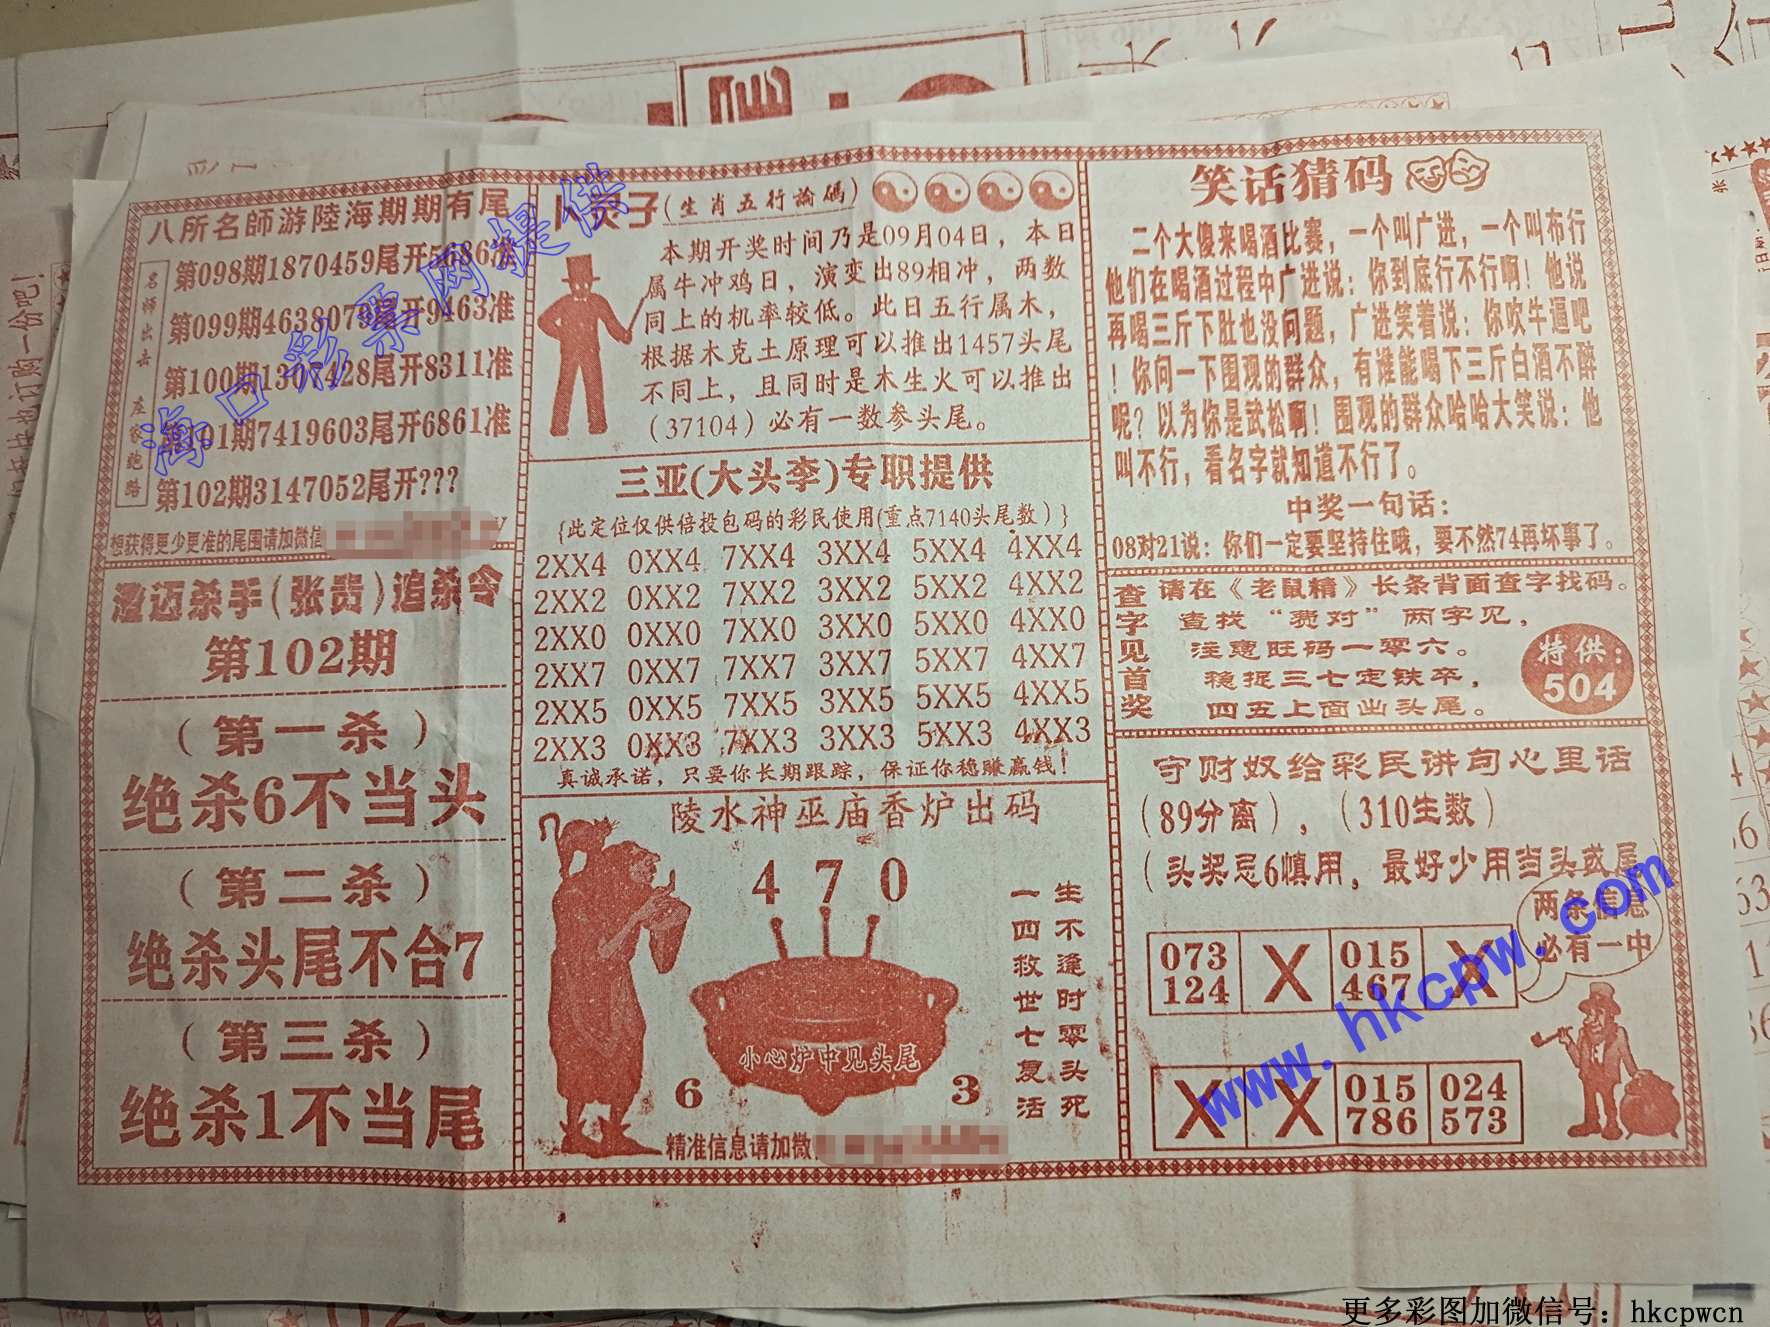 八所名師游陸海期期有尾
名师出击 庄家跑路
第098期1870459尾开5686准
第099期4638079尾开9463准
第100期1307428尾开8311准
期7419603尾开6861准
第102期3147052尾开???
想获得更少更准的尾围请加微信
澄迈杀手(张贵)追杀令
第102期
(第一杀)
绝杀6不当头
(第二杀)
绝杀头尾不合7
(第三杀)
绝杀1不当尾
子(生肖五行論碼)
本期开奖时间乃是09月04日，本日
属牛冲鸡日，演变出89相冲，两数
同上的机率较低。此日五行属木，
根据木克土原理可以推出1457头尾
不同上，且同时是木生火可以推出
(37104)必有一数参头尾。
三亚(大头李)专职提供
{此定位仅供倍投包码的彩民使用(重点7140头尾数)}
2XX4 0XX4 7XX4 3XX4 5XX4 4XX4
2XX2 0XX2 7XX2 3XX2 5XX2 4XX2
2XX0 0XX0 7XX0 3XX0 5XX0 4XX0
2XX7 0XX7 7XX7 3XX7 5XX7 4XX7
2XX5 0XX5 7XX5 3XX5 5XX5 4XX5
2XX3 0XX3 7XX3 3XX3 5XX3 4XX3
真诚承诺，只要你长期跟踪，保证你稳赚赢钱！
陵水神巫庙香炉出码
4 7 0
生不逢时零头死
一四救世七复活
小心炉中见头尾
6 3
精准信息请加微
笑话猜码
二个大傻来喝酒比赛，一个叫广进，一个叫布行
他们在喝酒过程中广进说：你到底行不行啊！他说
再喝三斤下肚也没问题，广进笑着说：你吹牛逼吧
！你问一下围观的群众，有谁能喝下三斤白酒不醉
呢？以为你是武松啊！围观的群众哈哈大笑说：他
叫不行，看名字就知道不行了。
中奖一句话：
08对21说：你们一定要坚持住哦，要不然74再坏事了。
查字见首奖
请在《老鼠精》长条背面查字找码。
查找“费对”两字见，
注意旺码一零六。
稳捉三七定铁卒，
四五上面出头尾。
特供：
504
守财奴给彩民讲句心里话
(89分离)，(310生数)
(头奖忌6慎用，最好少用当头或尾)
两条信息
必有一中
073 X 015 X
124 467
X X 015 024
786 573
海口彩票网提供
www.hkcpw.com
更多彩图加微信号：hkcpwcn